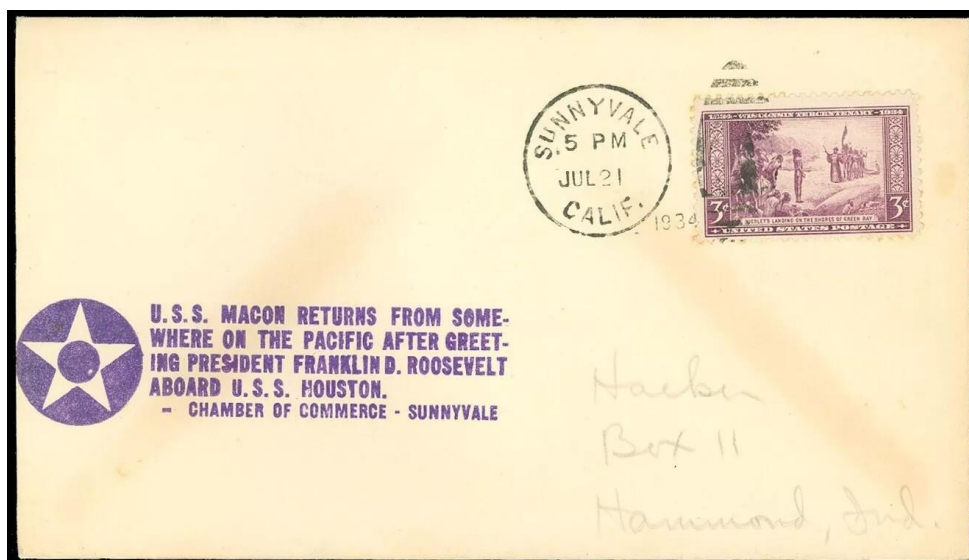 SUNNYVALE
5 PM
JUL 21
CALIF.
1934
1634-WISCONSIN TERCENTENARY-1934
3¢ 3¢
NICOLET'S LANDING ON THE SHORES OF GREEN BAY
UNITED STATES POSTAGE
U.S.S. MACON RETURNS FROM SOME-
WHERE ON THE PACIFIC AFTER GREET-
ING PRESIDENT FRANKLIN D. ROOSEVELT
ABOARD U.S.S. HOUSTON.
- CHAMBER OF COMMERCE - SUNNYVALE
Hacker
Box 11
Hammond, Ind.